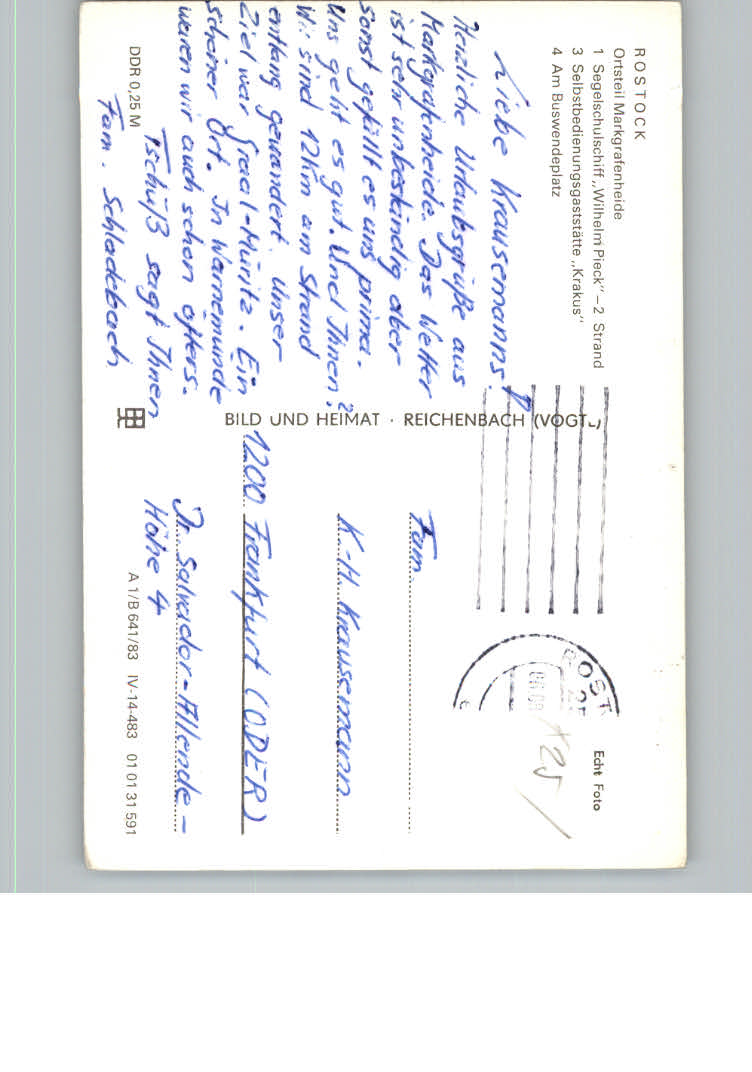 ROSTOCK
Ortsteil Markgrafenheide
1 Segelschulschiff „Wilhelm Pieck“ – 2 Strand
3 Selbstbedienungsgaststätte „Krakus“
4 Am Buswendeplatz
Liebe Krausemanns!
Herzliche Urlaubsgrüße aus
Markgrafenheide. Das Wetter
ist sehr unbeständig aber
sonst gefällt es uns prima.
Uns geht es gut. Und Ihnen?
Wir sind 12km am Strand
entlang gewandert. Unser
Ziel war Graal-Müritz. Ein
schöner Ort. In Warnemünde
waren wir auch schon öfters.
Tschüß sagt Ihnen
Fam. Schladebach
DDR 0,25 M
BILD UND HEIMAT · REICHENBACH (VOGTL.)
Echt Foto
ROST
25
x25
Fam.
K.-H. Krausemann
1200 Frankfurt (ODER)
Dr. Salvador-Allende-
Höhe 4
A 1/B 641/83 IV-14-483 01 01 31 591